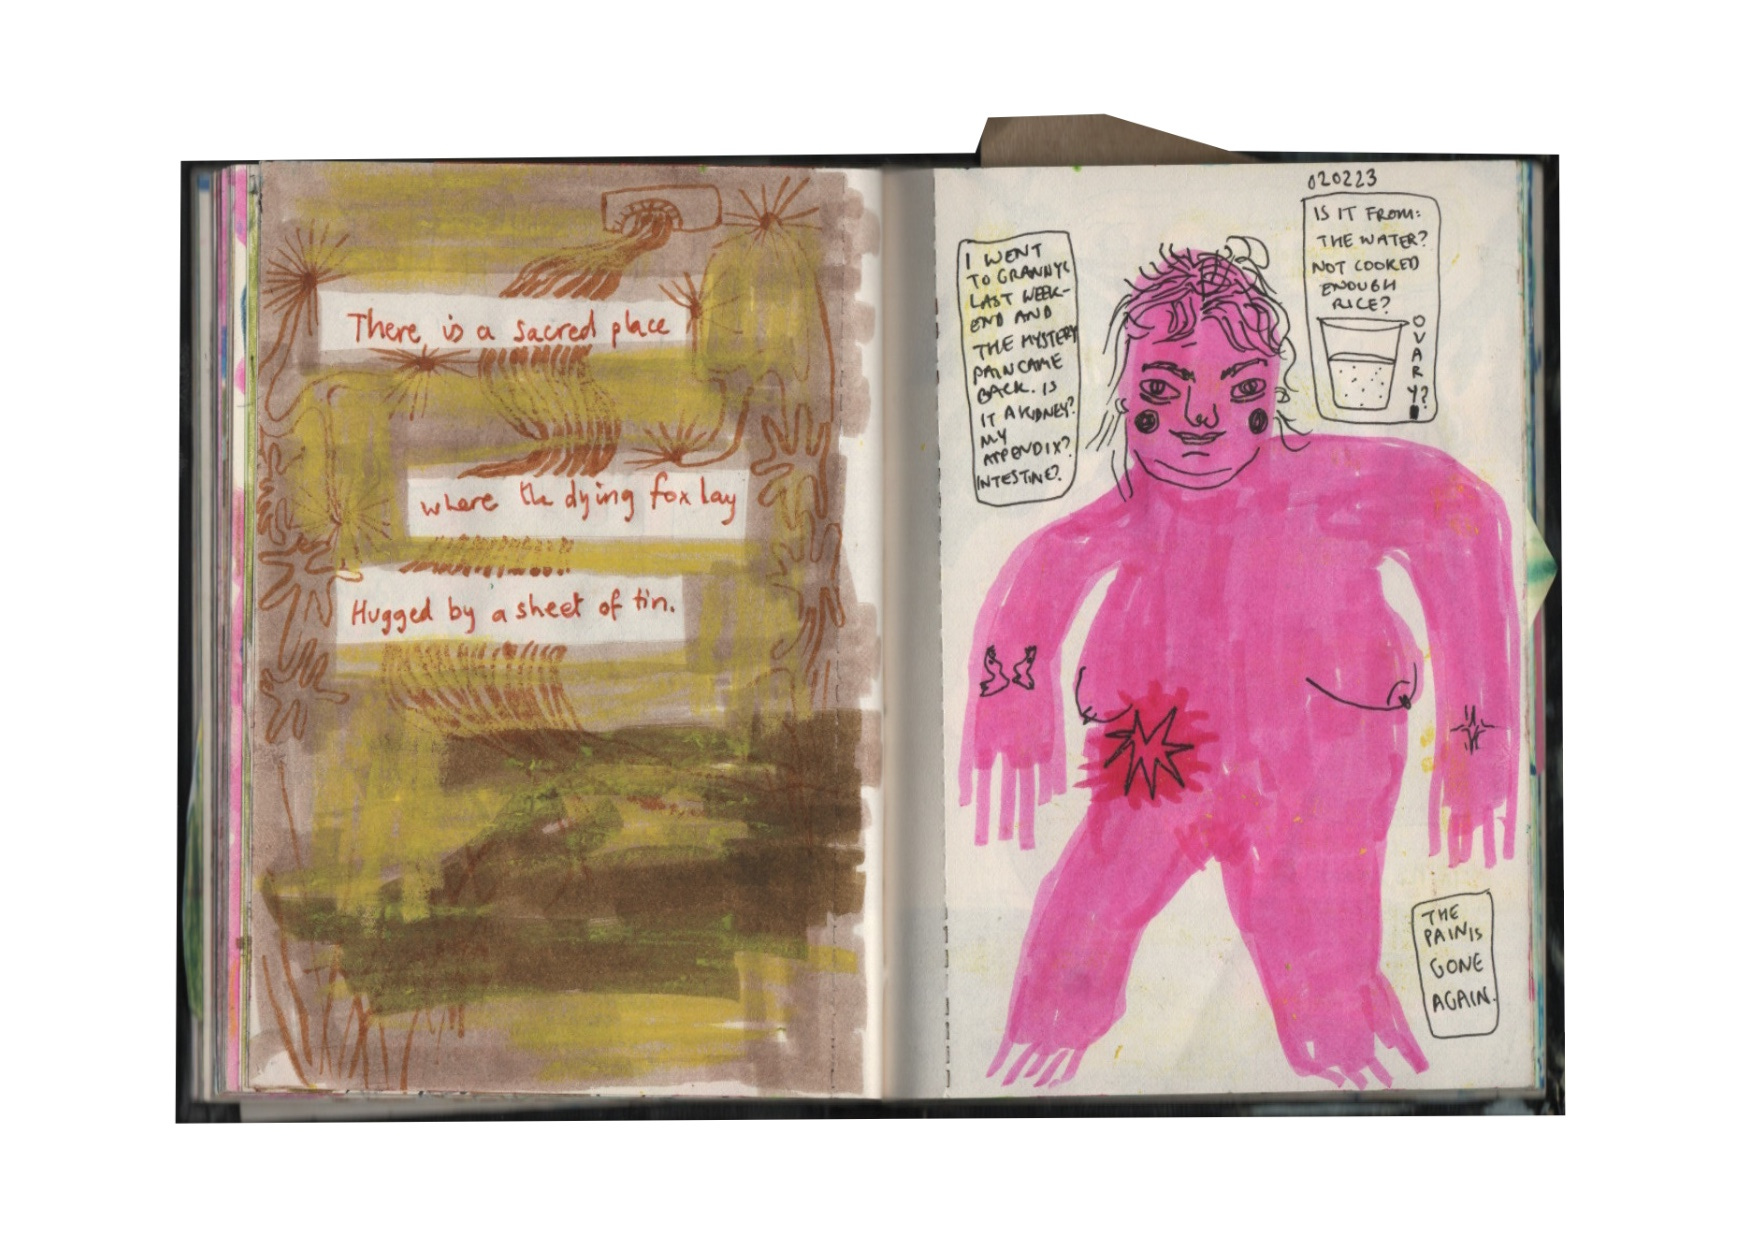 There is a sacred place
where the dying fox lay
Hugged by a sheet of tin.
020223
I WENT
TO GRANNYS
LAST WEEK-
END AND
THE MYSTERY
PAIN CAME
BACK. IS
IT A KIDNEY?
MY
APPENDIX?
INTESTINE?
IS IT FROM:
THE WATER?
NOT COOKED
ENOUGH
RICE?
OVARY?
THE
PAIN IS
GONE
AGAIN.